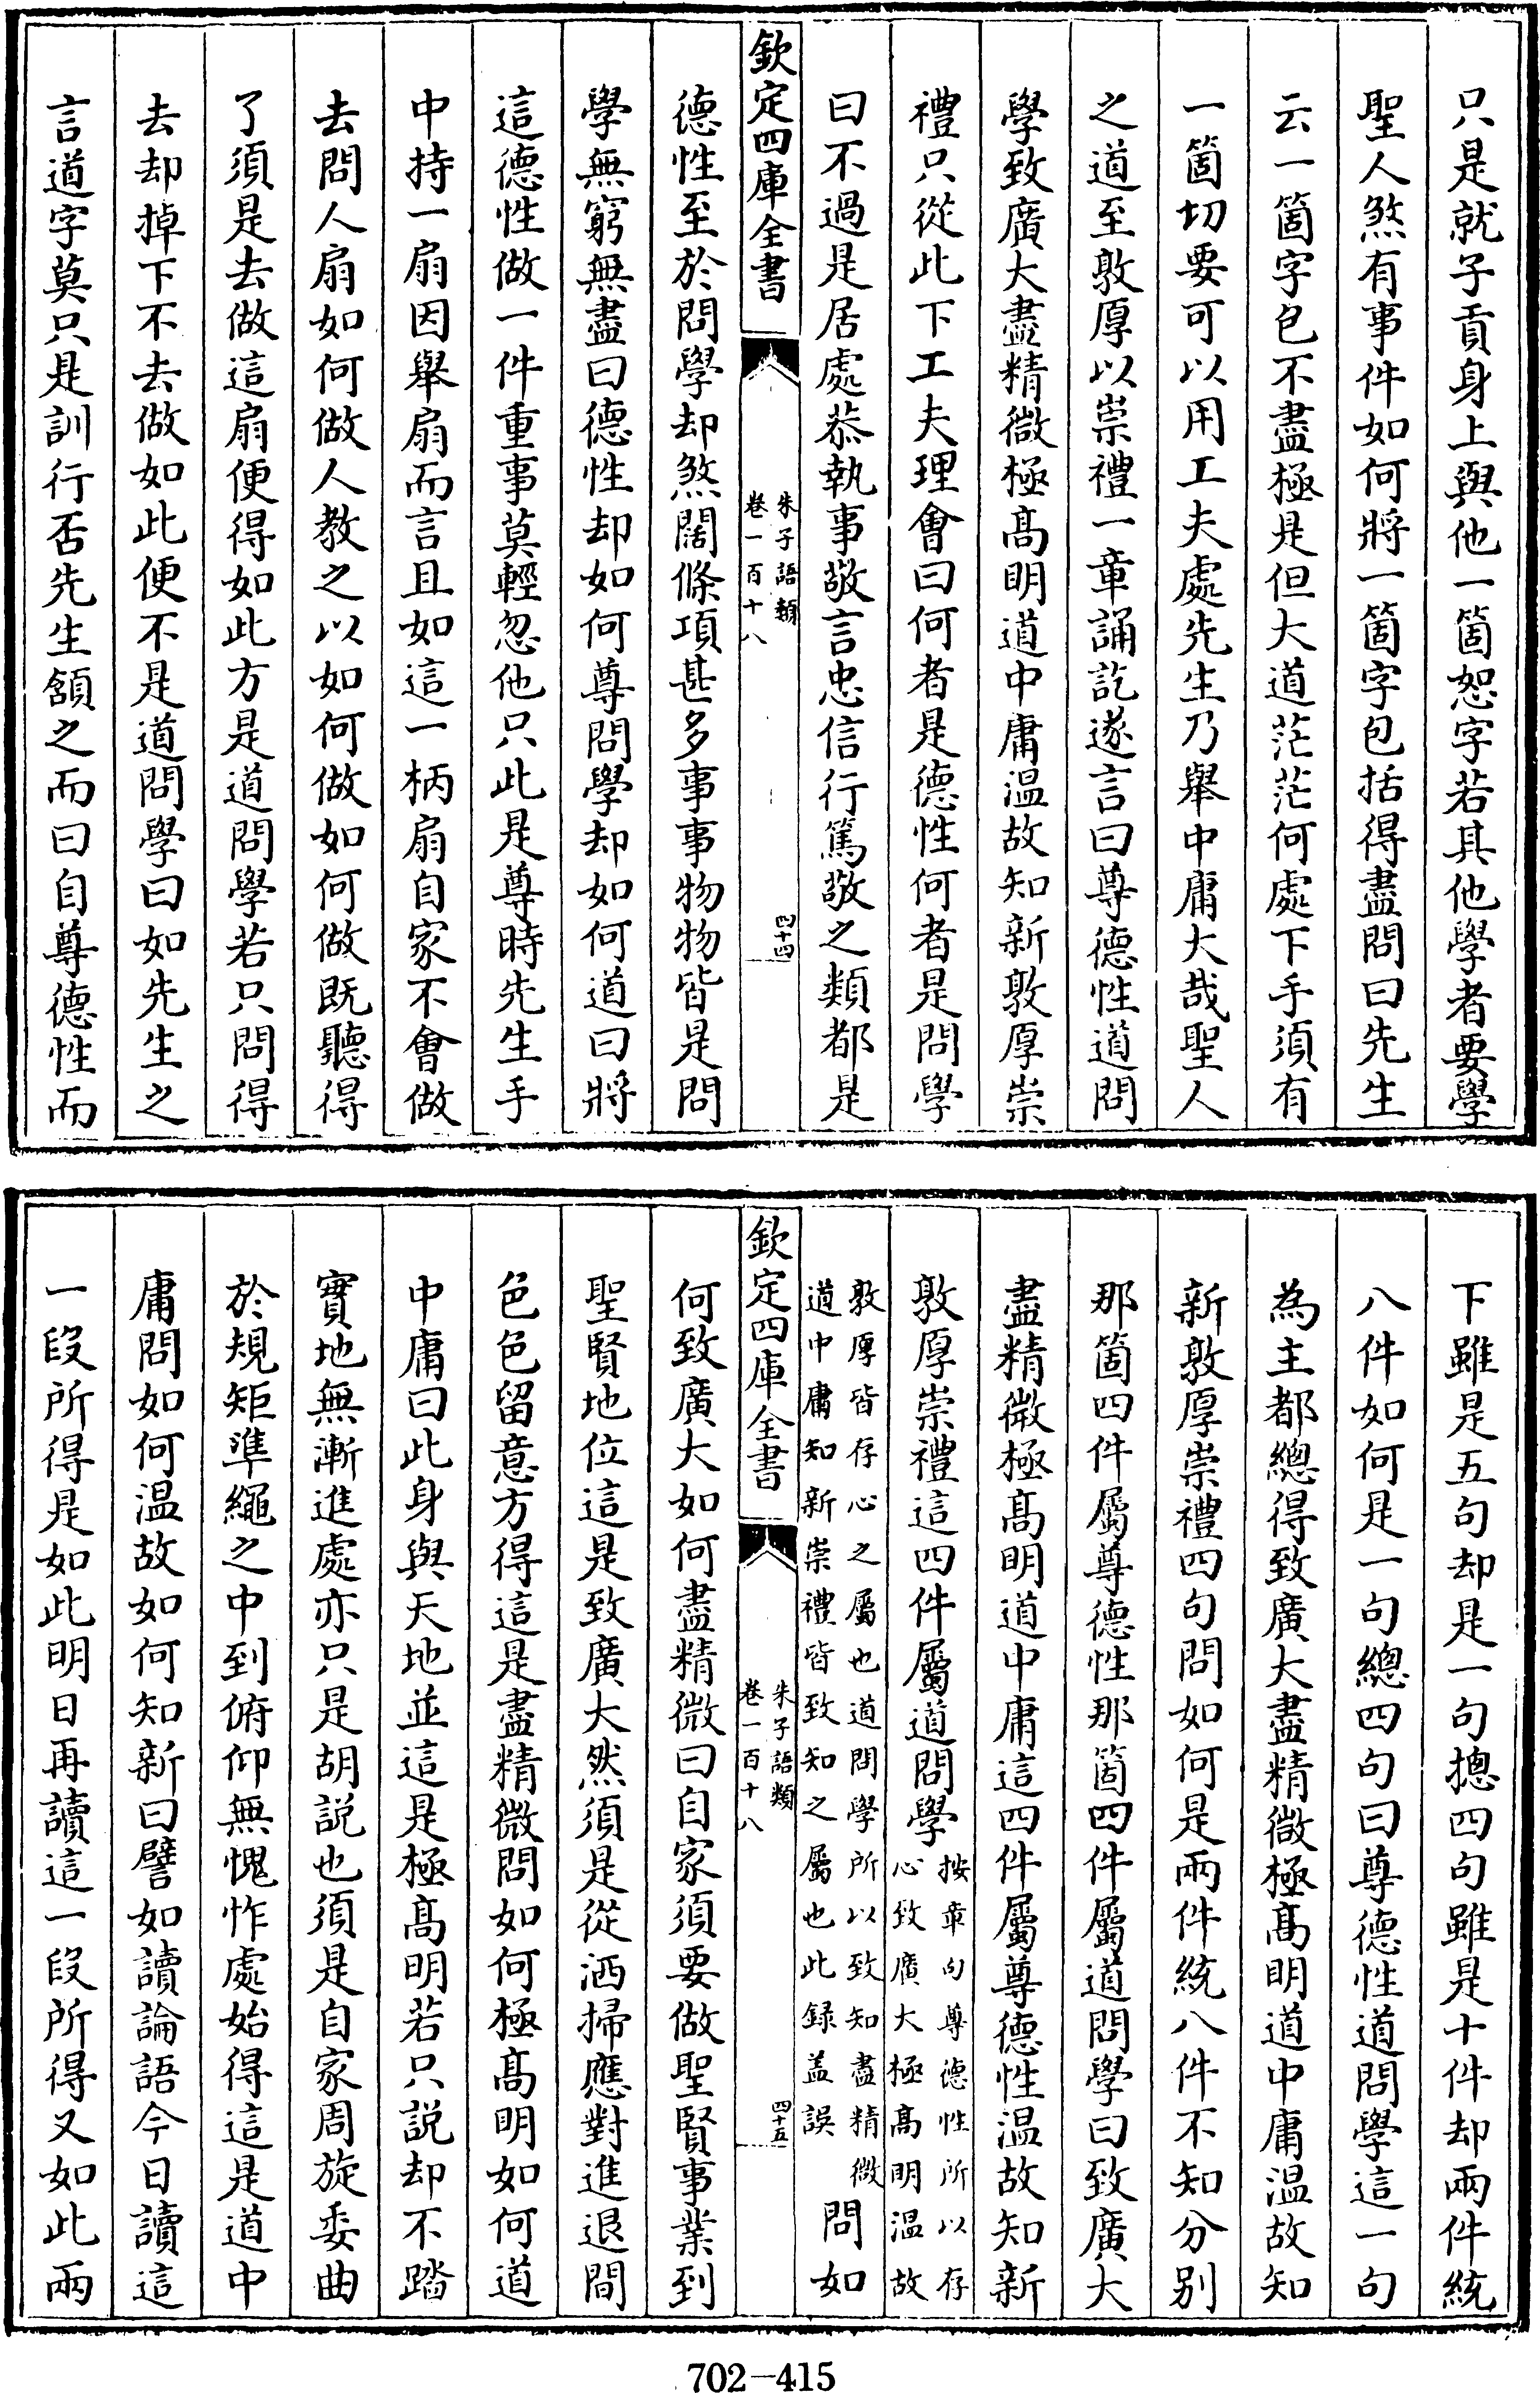 只是就子貢身上與他一箇恕字若其他學者要學
聖人煞有事件如何將一箇字包括得盡問曰先生
云一箇字包不盡極是但大道茫茫何處下手須有
一箇切要可以用工夫處先生乃舉中庸大哉聖人
之道至敦厚以崇禮一章誦訖遂言曰尊德性道問
學致廣大盡精微極髙明道中庸温故知新敦厚崇
禮只從此下工夫理會曰何者是德性何者是問學
曰不過是居處恭執事敬言忠信行篤敬之類都是
欽定四庫全書
朱子語類
卷一百十八
四十四
德性至於問學却煞闊條項甚多事事物物皆是問
學無窮無盡曰德性却如何尊問學却如何道曰將
這德性做一件重事莫輕忽他只此是尊時先生手
中持一扇因舉扇而言且如這一柄扇自家不會做
去問人扇如何做人教之以如何做如何做既聽得
了須是去做這扇便得如此方是道問學若只問得
去却掉下不去做如此便不是道問學曰如先生之
言道字莫只是訓行否先生頷之而曰自尊德性而
下雖是五句却是一句摠四句雖是十件却兩件統
八件如何是一句總四句曰尊德性道問學這一句
為主都總得致廣大盡精微極髙明道中庸温故知
新敦厚崇禮四句問如何是兩件統八件不知分别
那箇四件屬尊德性那箇四件屬道問學曰致廣大
盡精微極髙明道中庸這四件屬尊德性温故知新
敦厚崇禮這四件屬道問學
按章句尊德性所以存
心致廣大極髙明温故
敦厚皆存心之屬也道問學所以致知盡精微
道中庸知新崇禮皆致知之屬也此録盖誤
問如
欽定四庫全書
朱子語類
卷一百十八
四十五
何致廣大如何盡精微曰自家須要做聖賢事業到
聖賢地位這是致廣大然須是從洒掃應對進退間
色色留意方得這是盡精微問如何極髙明如何道
中庸曰此身與天地並這是極髙明若只説却不踏
實地無漸進處亦只是胡説也須是自家周旋委曲
於規矩準繩之中到俯仰無愧怍處始得這是道中
庸問如何温故如何知新曰譬如讀論語今日讀這
一段所得是如此明日再讀這一段所得又如此兩
702-415